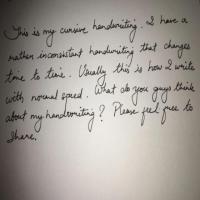 This is my cursive handwriting. I have a
rather inconsistent handwriting that changes
time to time. Usually this is how I write
with normal speed. What do you guys think
about my handwriting? Please feel free to
share.